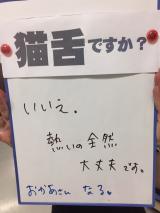 猫舌ですか？
いいえ。
熱いの全然
大丈夫です。
おかあさん なる。